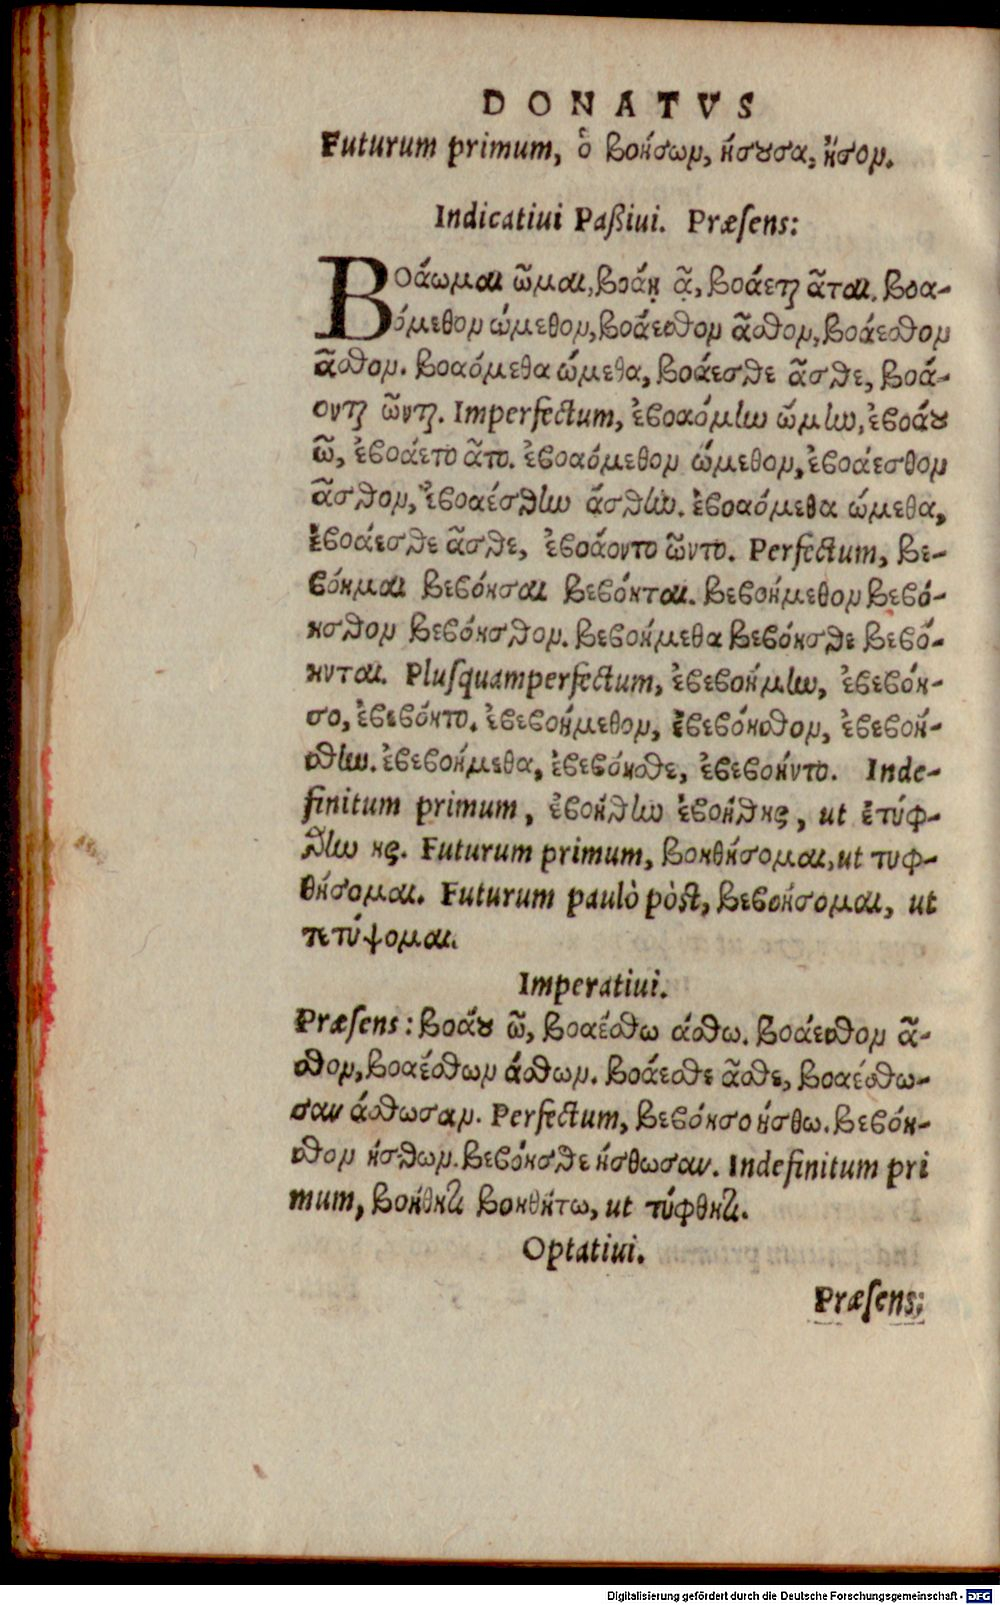 DONATVS
Futurum primum, ὁ βοήσων, ήσουσα, ῆσον.
Indicatiui Paßiui. Præſens:
Βοάωμαι ῶμαι, βοάῃ ᾷ, βοάεται ᾶται. βοα-
όμεθον ώμεθον, βοάεσθον ᾶσθον, βοάεσθον
ᾶσθον. βοαόμεθα ώμεθα, βοάεσθε ᾶσθε, βοά-
ονται ῶνται. Imperfectum, ἐβοαόμην ώμην, ἐβοάου
ῶ, ἐβοάετο ᾶτο. ἐβοαόμεθον ώμεθον, ἐβοάεσθον
ᾶσθον, ἐβοαέσθην άσθην. ἐβοαόμεθα ώμεθα,
ἐβοάεσθε ᾶσθε, ἐβοάοντο ῶντο. Perfectum, βε-
βόημαι βεβόησαι βεβόηται. βεβοήμεθον βεβό-
ησθον βεβόησθον. βεβοήμεθα βεβόησθε βεβό-
ηνται. Pluſquamperfectum, ἐβεβοήμην, ἐβεβόη-
σο, ἐβεβόητο. ἐβεβοήμεθον, ἐβεβόησθον, ἐβεβοή-
σθην. ἐβεβοήμεθα, ἐβεβόησθε, ἐβεβοήντο. Inde-
finitum primum, ἐβοήθην ἐβοήθης, ut ἐτύφ-
θην ης. Futurum primum, βοηθήσομαι, ut τυφ-
θήσομαι. Futurum paulò pòst, βεβοήσομαι, ut
τετύψομαι.
Imperatiui.
Præſens: βοάου ῶ, βοαέσθω άσθω. βοάεσθον ᾶ-
σθον, βοαέσθων άσθων. βοάεσθε ᾶσθε, βοαέσθω-
σαν άσθωσαν. Perfectum, βεβόησο ήσθω. βεβόη-
σθον ήσθων. βεβόησθε ήσθωσαν. Indefinitum pri
mum, βοήθητι βοηθήτω, ut τύφθητι.
Optatiui.
Præſens:
Digitalisierung gefördert durch die Deutsche Forschungsgemeinschaft - DFG